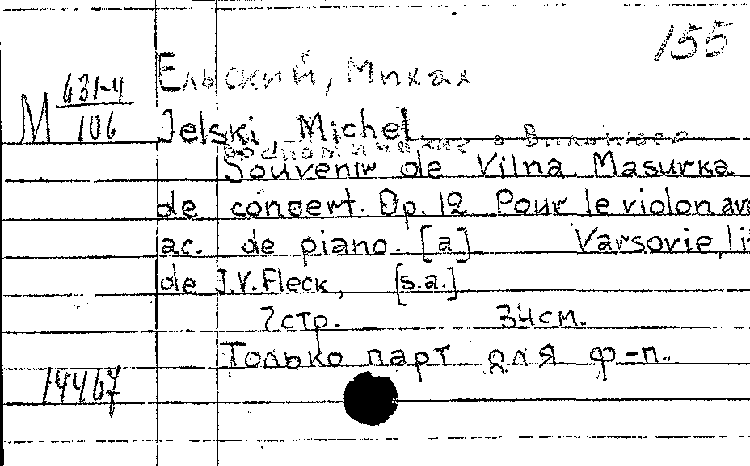 155
Ельский, Михал
М 631-4/106
Jelski Michel.
Воспоминание о Вильнюсе
Souvenir de Vilna Masurka
de concert. Op. 12 Pour le violon av
ac. de piano. [a] Varsovie, li
de J.V. Fleck, [s.a.]
7 стр. 34 см.
Только парт для ф-п.
14467